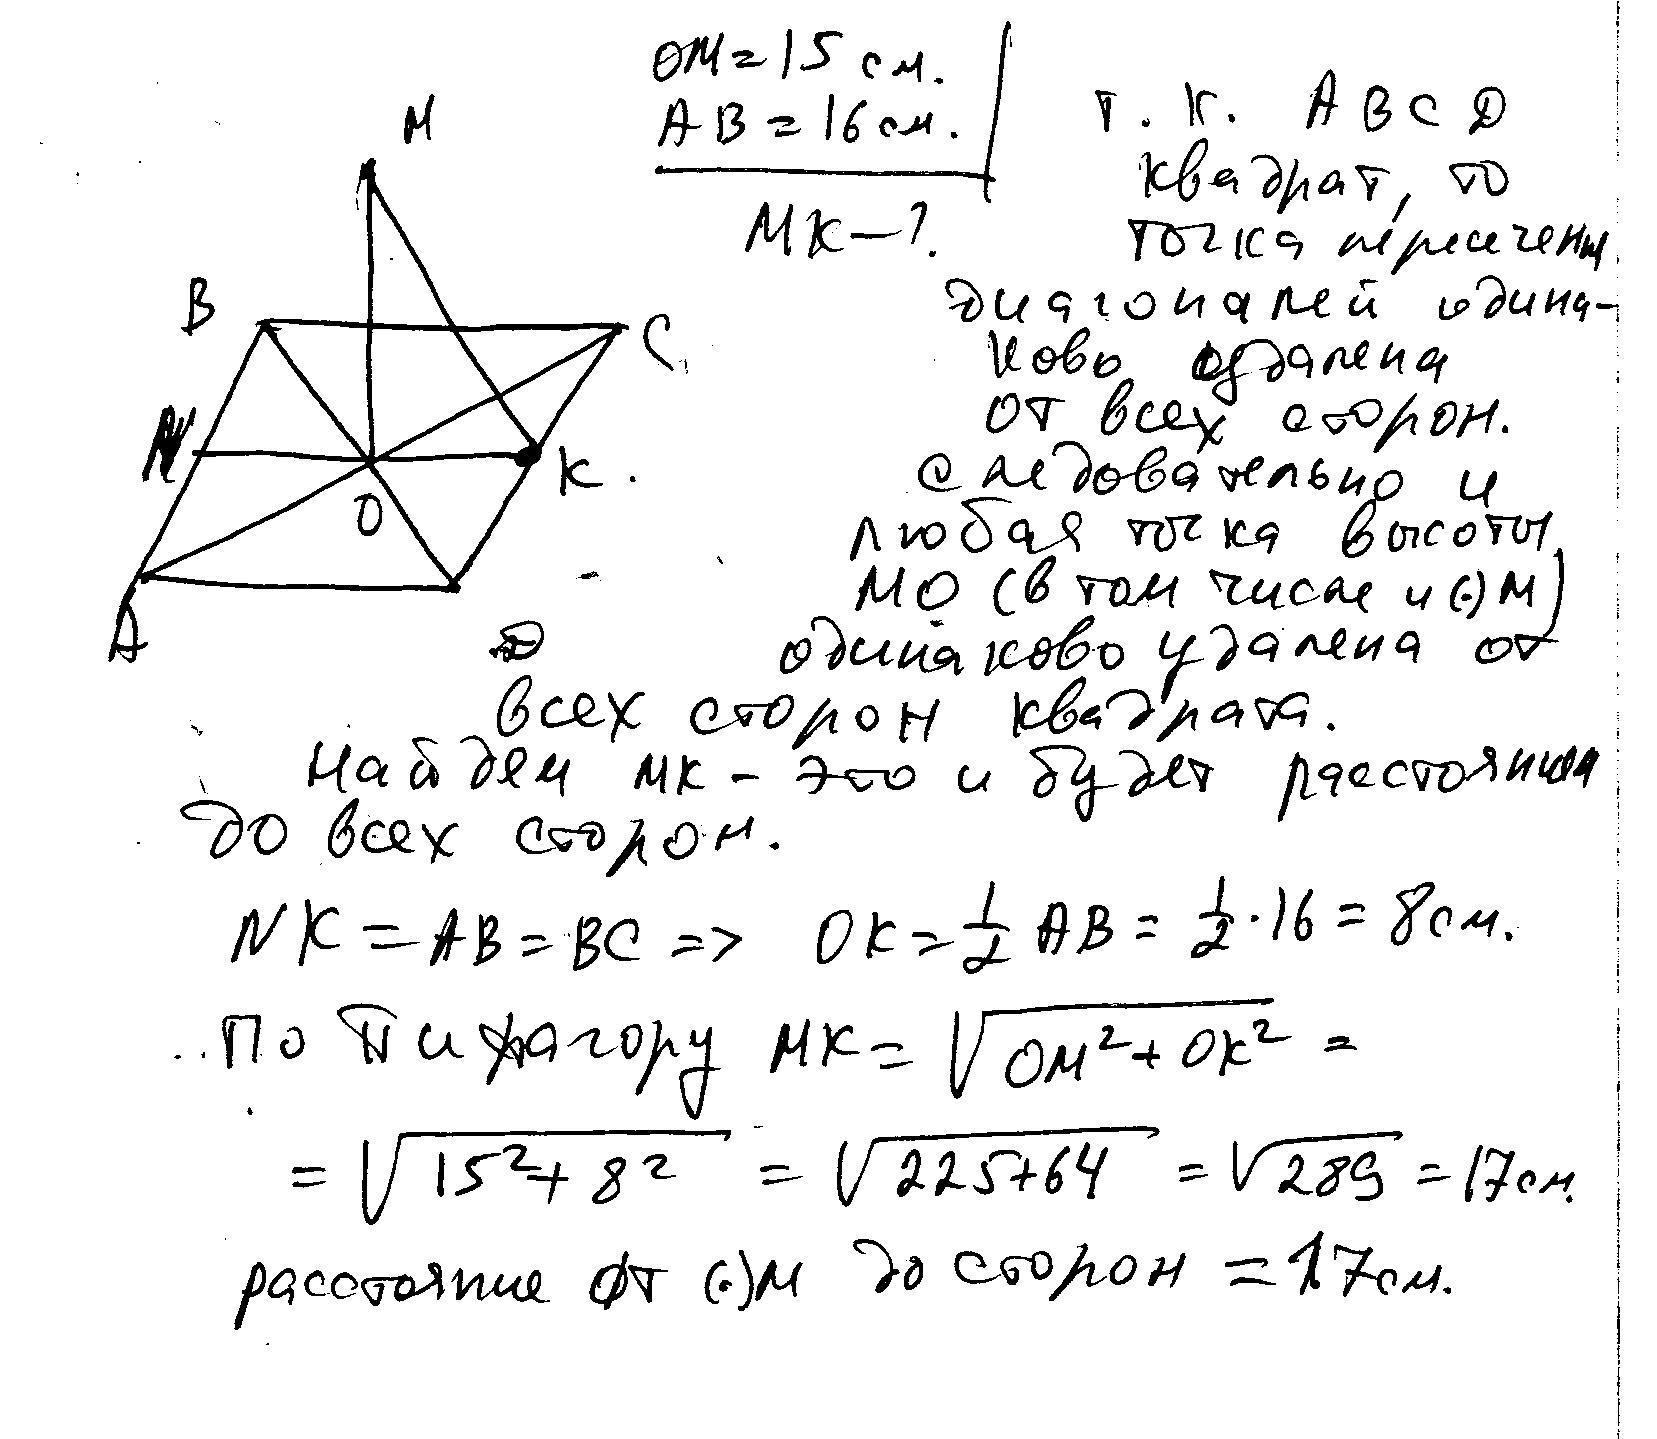 OM = 15 см.
AB = 16 см.
MK – ?
M
B
C
N
K.
O
A
D
Т. К. ABCD
квадрат, то
точка пересечения
диагоналей одина-
ково удалена
от всех сторон.
следовательно и
любая точка высоты
МО (в том числе и (·) М)
одинаково удалена от
всех сторон квадрата.
Найдем МК – это и будет расстояния
до всех сторон.
NK = AB = BC => OK = 1/2 AB = 1/2 · 16 = 8 см.
По Пифагору MK = √OM² + OK² =
= √15² + 8² = √225 + 64 = √289 = 17 см.
расстояние от (·) М до сторон = 17 см.